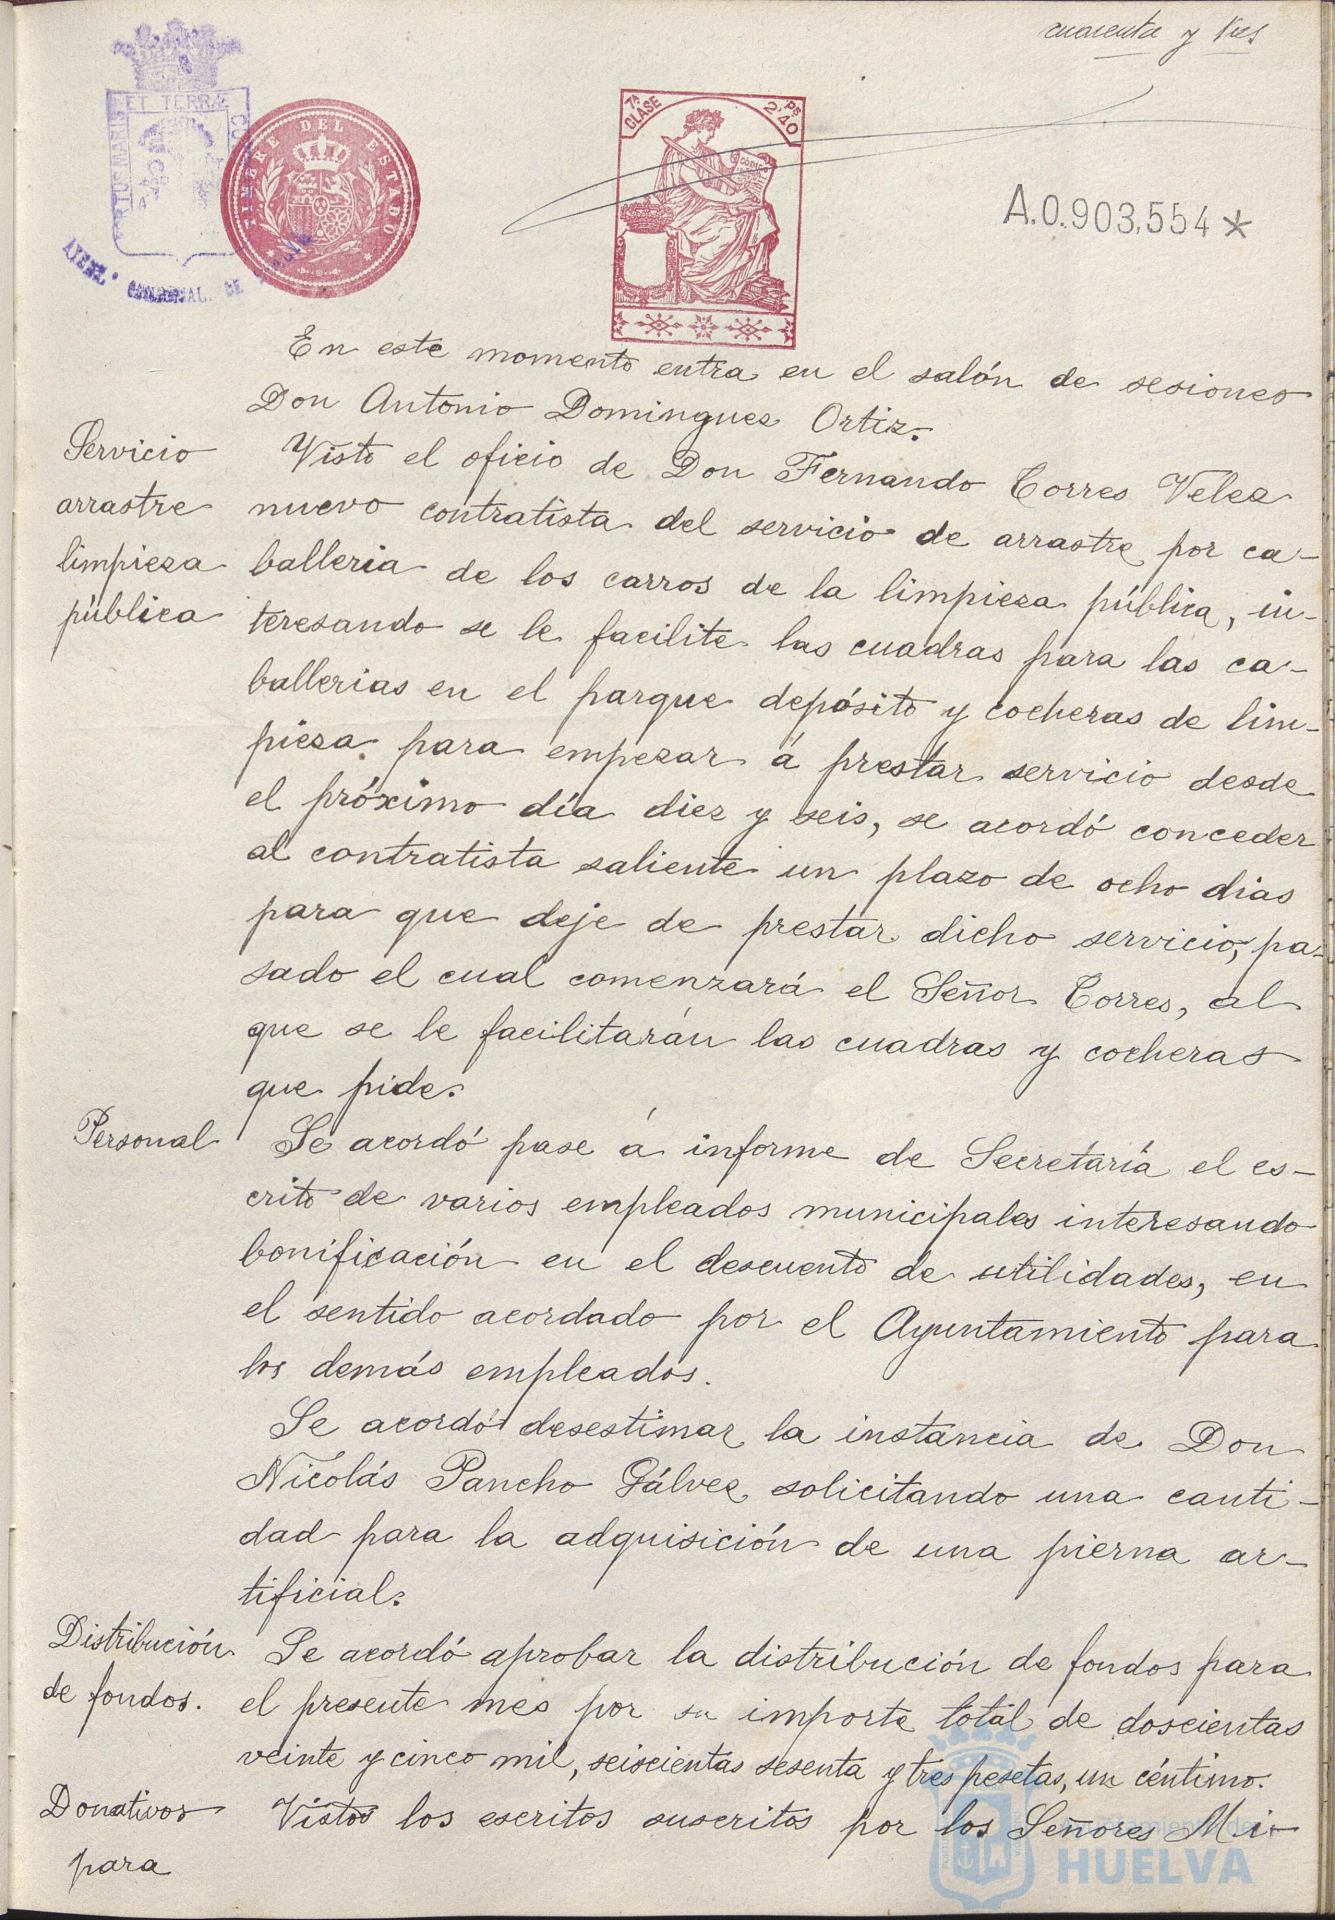 cuarenta y tres
ET TERRÆ
TIMBRE DEL ESTADO
7ª CLASE
2'40 Ps
CODIGO
A.0.903,554*
En este momento entra en el salón de sesiones
Don Antonio Dominguez Ortiz.
Servicio
arrastre
limpieza
pública
Visto el oficio de Don Fernando Torres Velez
nuevo contratista del servicio de arrastre por ca-
balleria de los carros de la limpieza pública, in-
teresando se le facilite las cuadras para las ca-
ballerias en el parque depósito y cocheras de lim-
pieza para empezar á prestar servicio desde
el próximo día diez y seis, se acordó conceder
al contratista saliente un plazo de ocho dias
para que deje de prestar dicho servicio, pa-
sado el cual comenzará el Señor Torres, al
que se le facilitarán las cuadras y cocheras
que pide.
Personal
Se acordó pase á informe de Secretaría el es-
crito de varios empleados municipales interesando
bonificación en el descuento de utilidades, en
el sentido acordado por el Ayuntamiento para
los demás empleados.
Se acordó desestimar la instancia de Don
Nicolás Pancho Gálvez solicitando una canti-
dad para la adquisición de una pierna ar-
tificial.
Distribución
de fondos.
Se acordó aprobar la distribución de fondos para
el presente mes por su importe total de doscientas
veinte y cinco mil, seiscientas sesenta y tres pesetas, un céntimo.
Donativos
para
Vistos los escritos suscritos por los Señores Mi-
Ayuntamiento de
HUELVA